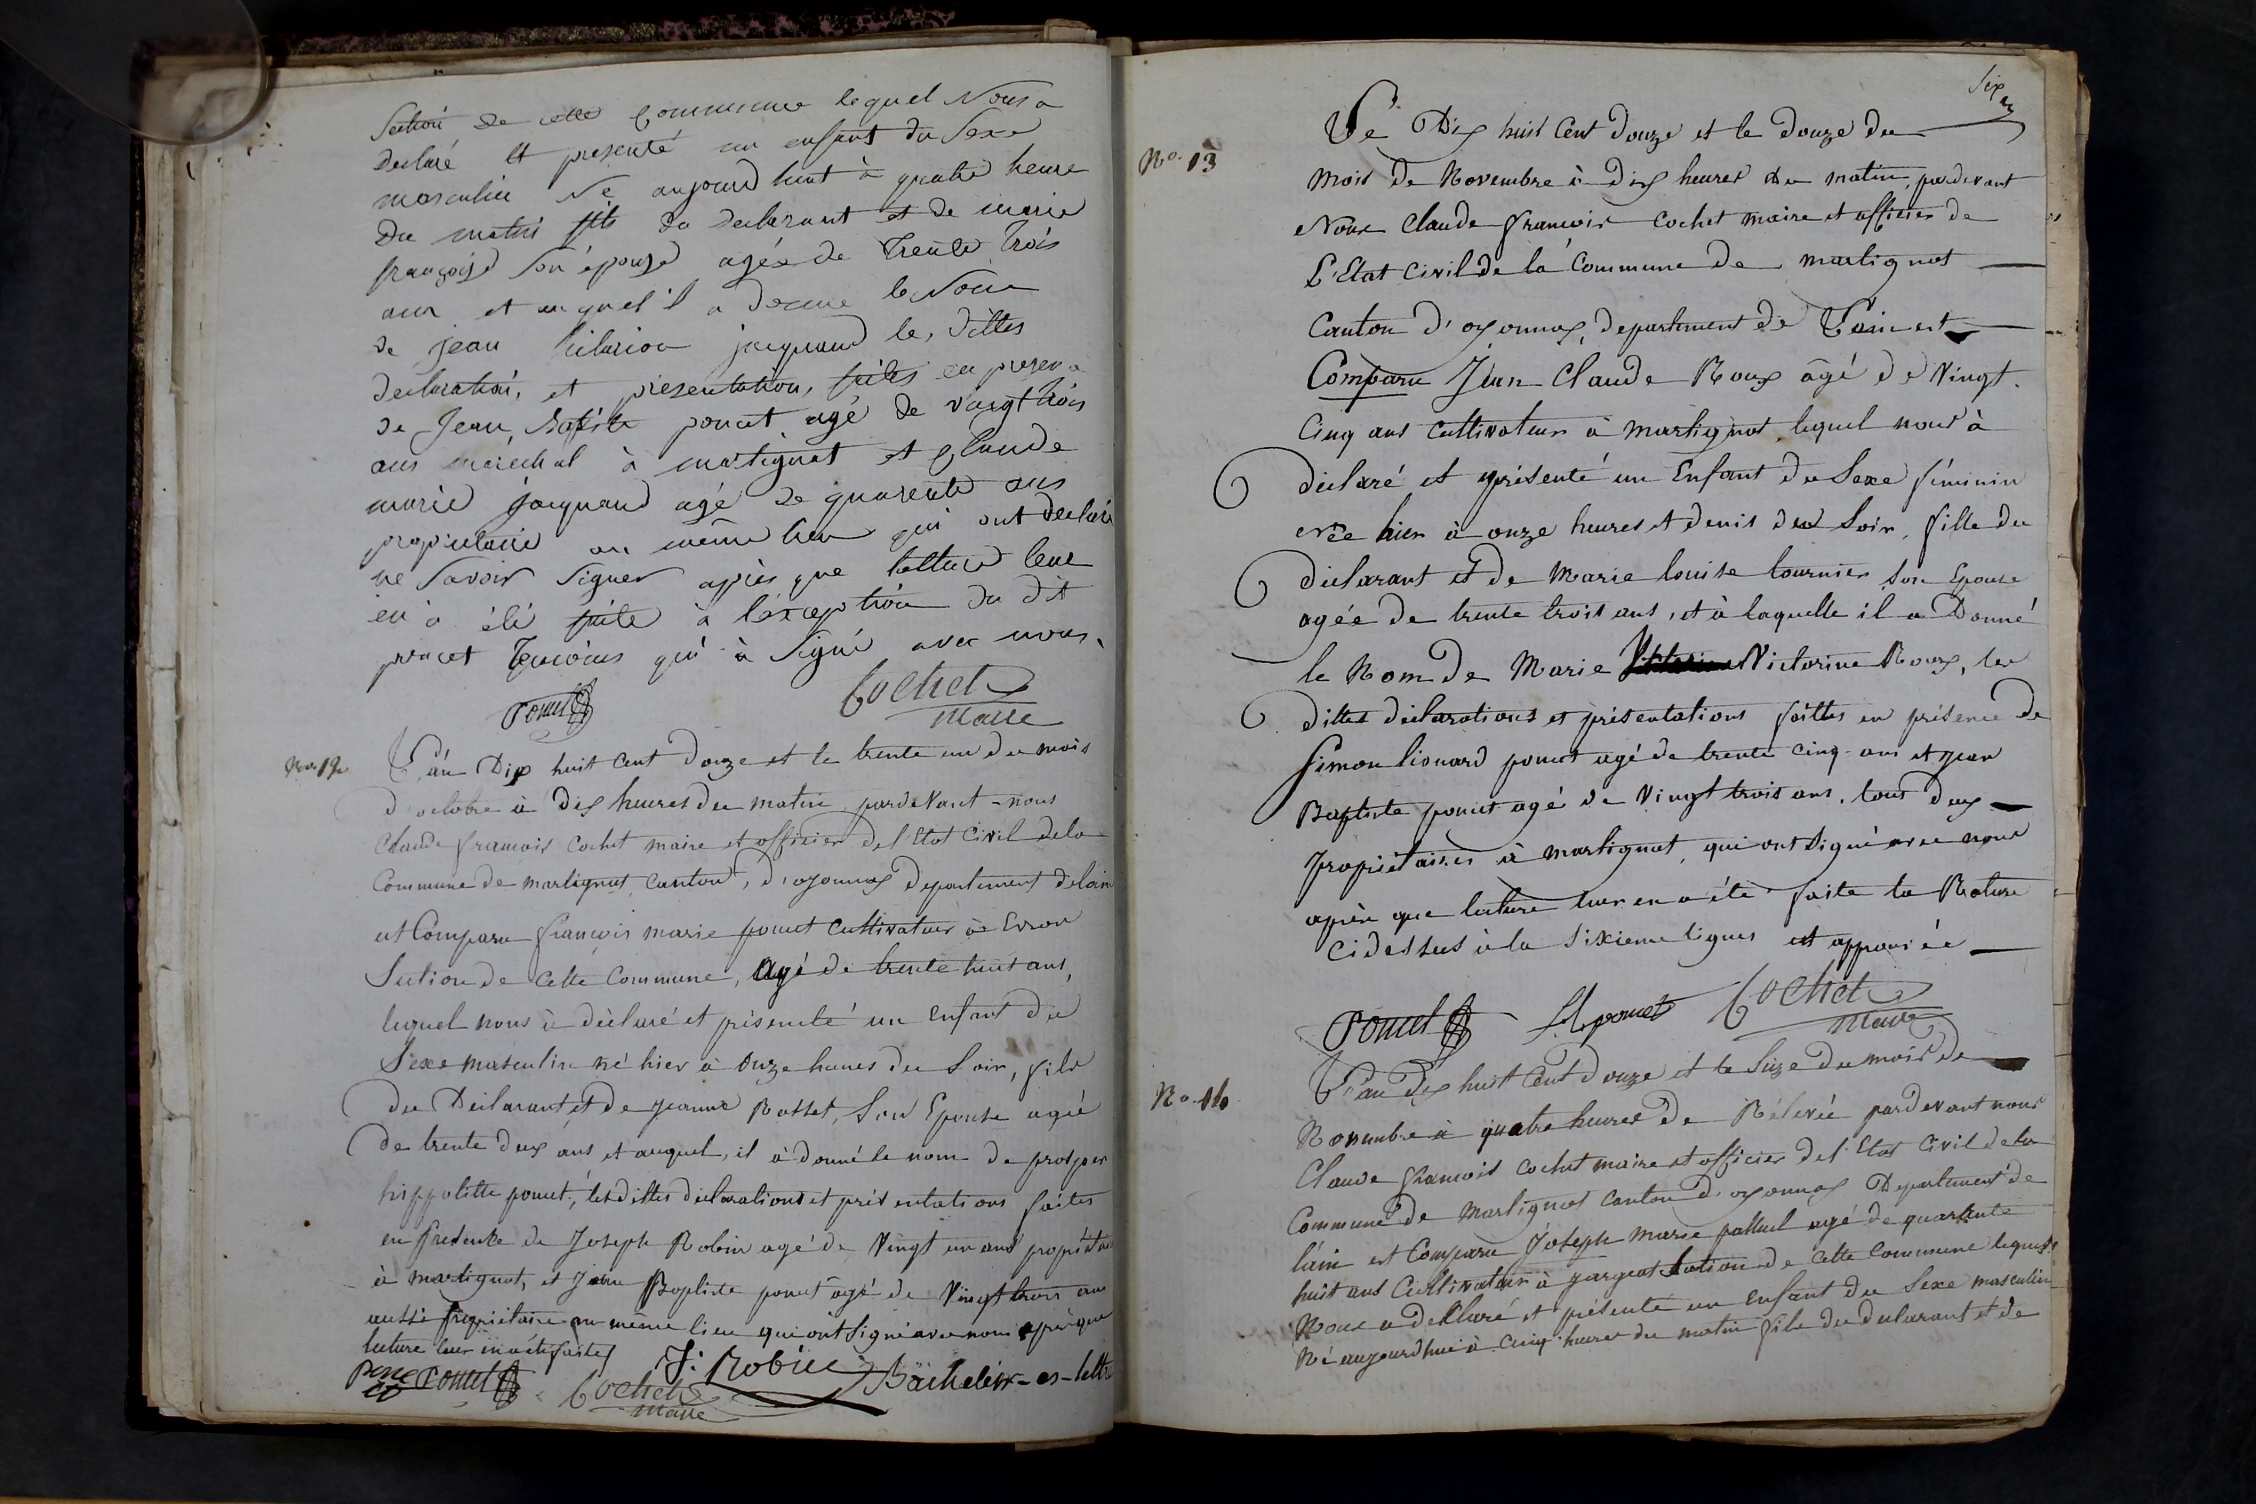 Section de cette Commune lequel Nous a
declaré et presenté un enfant du Sexe
masculin Né aujourd huit à quatre heure
du matin fils du declarant et de marie
françoise son épouse agée de trente trois
ans et auquel il a donné le Nom
de jean hilarion jacquand les dittes
declaration, et presentation, faites en presence
de Jean Batiste poncet agé de vaingt trois
ans marechal à martignat et Claude
marie jacquand agé de quarente ans
propriétaire au même lieu qui ont declaré
ne Savoir Signer après que lecture leur
en a été faite à l'éxception du dit
poncet temoins qui à Signé avec nous.
Poncet
Cochet
Maire
No. 12
L'án Dix huit cent douze et le trente un du mois
d'octobre à dix heures du matin pardevant nous
Claude françois cochet maire et officier de l'Etat Civil de la
Commune de martignat, canton, d'oyonnax departement de lain
est Comparu françois marie poncet cultivateur à Evron
Section de cette Commune, agé de trente huit ans,
lequel nous à déclaré et présenté un Enfant du
Sexe masculin né hier à Onze heures du Soir, fils
du Déclarant et de jeanne Rosset, Son Epouse agée
de trente deux ans et auquel, il à donné le nom de prosper
hippolitte poncet, les dittes déclarations et présentations faites
en présence de Joseph Robin agé de Vingt un ans propriétaire
à martignat, et Jean Baptiste poncet âgé de Vingt trois ans
aussi propriétaire au même lieu qui ont Signé avec nous après que
lecture leur en a été faite
Poncet
J: Robin Bachelier-es-lettr
Cochet
Maire
Six
No. 13
L'é Dix huit Cent Douze et le Douze du
Mois de Novembre à Dix heures du matin, pardevant
Nous Claude françois Cochet maire et officier de
L'Etat Civil de la Commune de martignat
Canton d'oyonnax, departement de L'ain est
Comparu Jean Claude Roux âgé de Vingt
Cinq ans cultivateur à Martignat lequel nous à
déclaré et présenté un Enfant du Sexe féminin
née hier à onze heures et demis du Soir, fille du
déclarant et de Marie louise tournier Son Epouse
agée de trente trois ans, et à laquelle il a Donné
le Nom de Marie Victorine Roux, les
dittes déclarations et présentations faittes en présence de
Simon lionard poncet agé de trente cinq ans et jean
Baptiste poncet agé de Vingt trois ans, tous deux
Propriétaires à martignat, qui ont Signé avec nous
après que lecture leur en a été faite la Rature
cidessus à la Sixieme lignes est approuvée
Poncet SL poncet Cochet
Maire
No. 14
L'an Dix huit Cent Douze et le Seize du mois de
Novembre à quatre heures de Rélevée pardevant nous
Claude françois cochet maire et officier de l'Etat Civil de la
Commune de Martignat canton d'oyonnax Departement de
l'ain est Comparu Joseph Marie palluel agé de quarante
huit ans Cultivateur à jargeat Section de cette Commune lequel
Nous a declaré et présenté un enfant du Sexe masculin
Né aujourdhui à cinq heures du matin fils du declarant et de